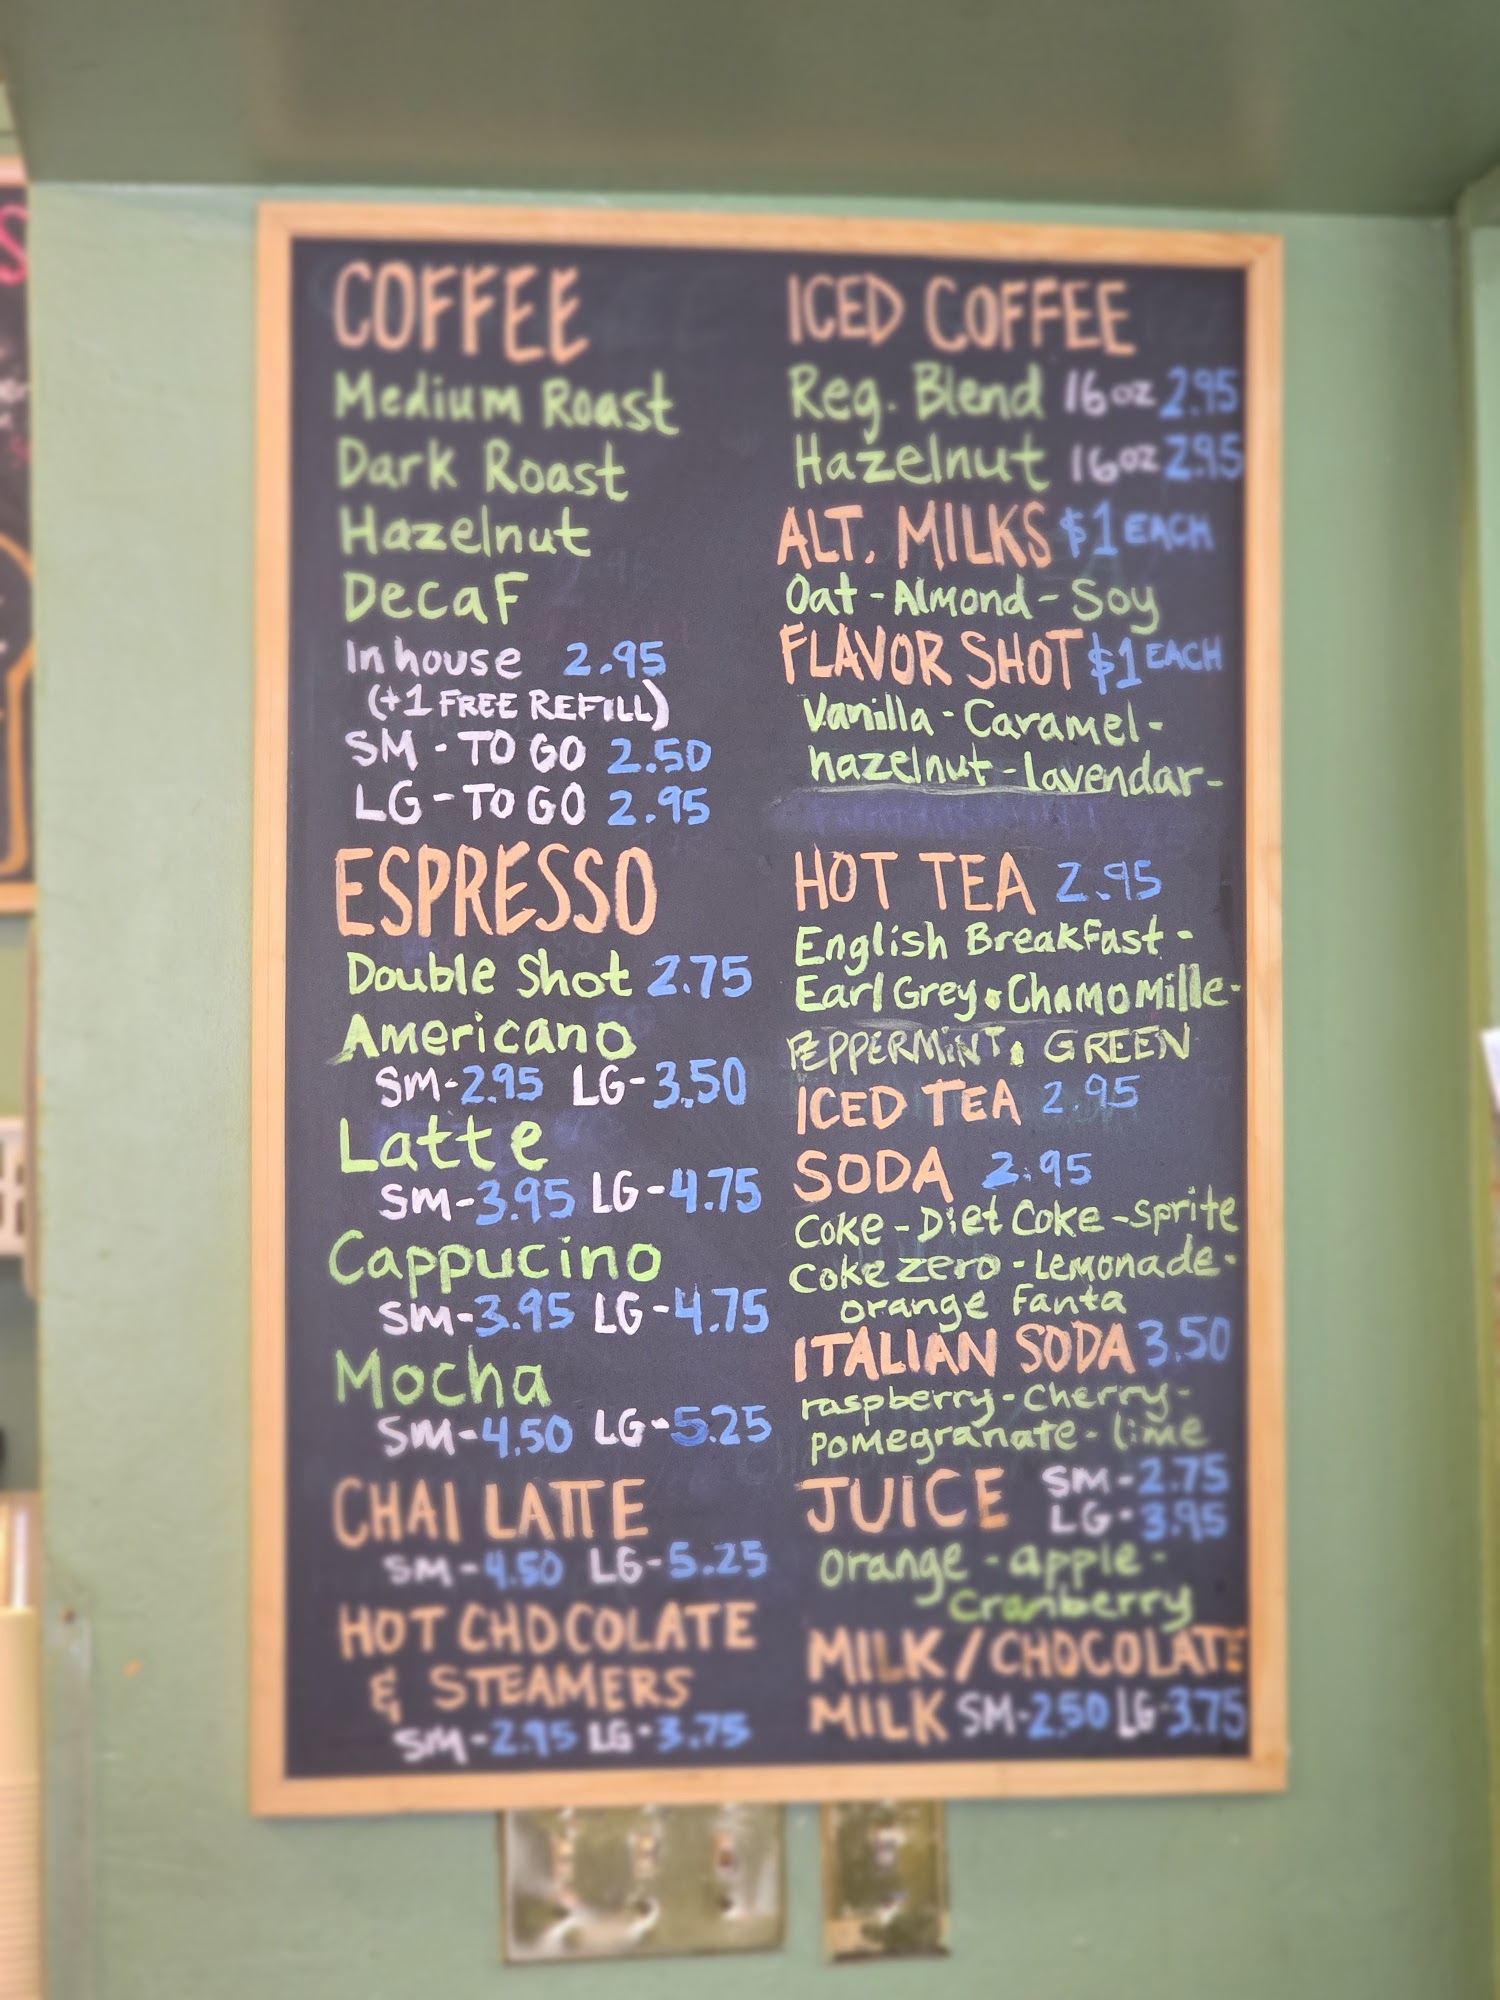 COFFEE
Medium Roast
Dark Roast
Hazelnut
Decaf
In house 2.95
(+1 FREE REFILL)
SM - TO GO 2.50
LG - TO GO 2.95
ESPRESSO
Double Shot 2.75
Americano
SM-2.95 LG-3.50
Latte
SM-3.95 LG-4.75
Cappucino
SM-3.95 LG-4.75
Mocha
SM-4.50 LG-5.25
CHAI LATTE
SM-4.50 LG-5.25
HOT CHOCOLATE
& STEAMERS
SM-2.95 LG-3.75
ICED COFFEE
Reg. Blend 16oz 2.95
Hazelnut 16oz 2.95
ALT. MILKS $1 EACH
Oat - Almond - Soy
FLAVOR SHOT $1 EACH
Vanilla - Caramel -
hazelnut - lavendar -
HOT TEA 2.95
English Breakfast -
Earl Grey • Chamomille -
PEPPERMiNT • GREEN
ICED TEA 2.95
SODA 2.95
Coke - Diet Coke - Sprite
Coke zero - Lemonade -
orange Fanta
ITALIAN SODA 3.50
raspberry - Cherry -
pomegranate - lime
JUICE SM-2.75
LG-3.95
orange - apple -
Cranberry
MILK / CHOCOLATE
MILK SM-2.50 LG-3.75